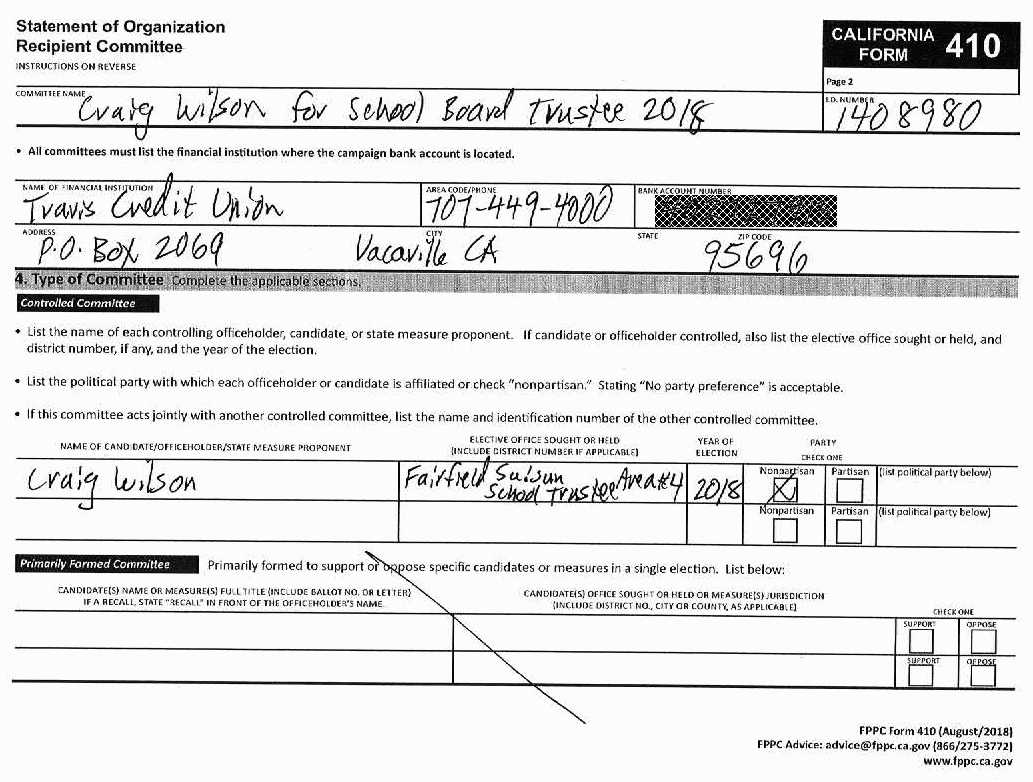 Statement of Organization
Recipient Committee
INSTRUCTIONS ON REVERSE
CALIFORNIA
FORM 410
Page 2
COMMITTEE NAME
Craig Wilson for School Board Trustee 2018
I.D. NUMBER
1408980
• All committees must list the financial institution where the campaign bank account is located.
NAME OF FINANCIAL INSTITUTION
Travis Credit Union
AREA CODE/PHONE
707-449-4000
BANK ACCOUNT NUMBER
ADDRESS
P.O. Box 2069
CITY
Vacaville CA
STATE
ZIP CODE
95696
4. Type of Committee Complete the applicable sections.
Controlled Committee
• List the name of each controlling officeholder, candidate, or state measure proponent. If candidate or officeholder controlled, also list the elective office sought or held, and
district number, if any, and the year of the election.
• List the political party with which each officeholder or candidate is affiliated or check "nonpartisan." Stating "No party preference" is acceptable.
• If this committee acts jointly with another controlled committee, list the name and identification number of the other controlled committee.
NAME OF CANDIDATE/OFFICEHOLDER/STATE MEASURE PROPONENT
ELECTIVE OFFICE SOUGHT OR HELD
(INCLUDE DISTRICT NUMBER IF APPLICABLE)
YEAR OF
ELECTION
PARTY
CHECK ONE
Craig Wilson
Fairfield Suisun
School Trustee Area #4
2018
Nonpartisan
X
Partisan
(list political party below)
Nonpartisan
Partisan
(list political party below)
Primarily Formed Committee
Primarily formed to support or oppose specific candidates or measures in a single election. List below:
CANDIDATE(S) NAME OR MEASURE(S) FULL TITLE (INCLUDE BALLOT NO. OR LETTER)
IF A RECALL, STATE "RECALL" IN FRONT OF THE OFFICEHOLDER'S NAME.
CANDIDATE(S) OFFICE SOUGHT OR HELD OR MEASURE(S) JURISDICTION
(INCLUDE DISTRICT NO., CITY OR COUNTY, AS APPLICABLE)
CHECK ONE
SUPPORT
OPPOSE
SUPPORT
OPPOSE
FPPC Form 410 (August/2018)
FPPC Advice: advice@fppc.ca.gov (866/275-3772)
www.fppc.ca.gov